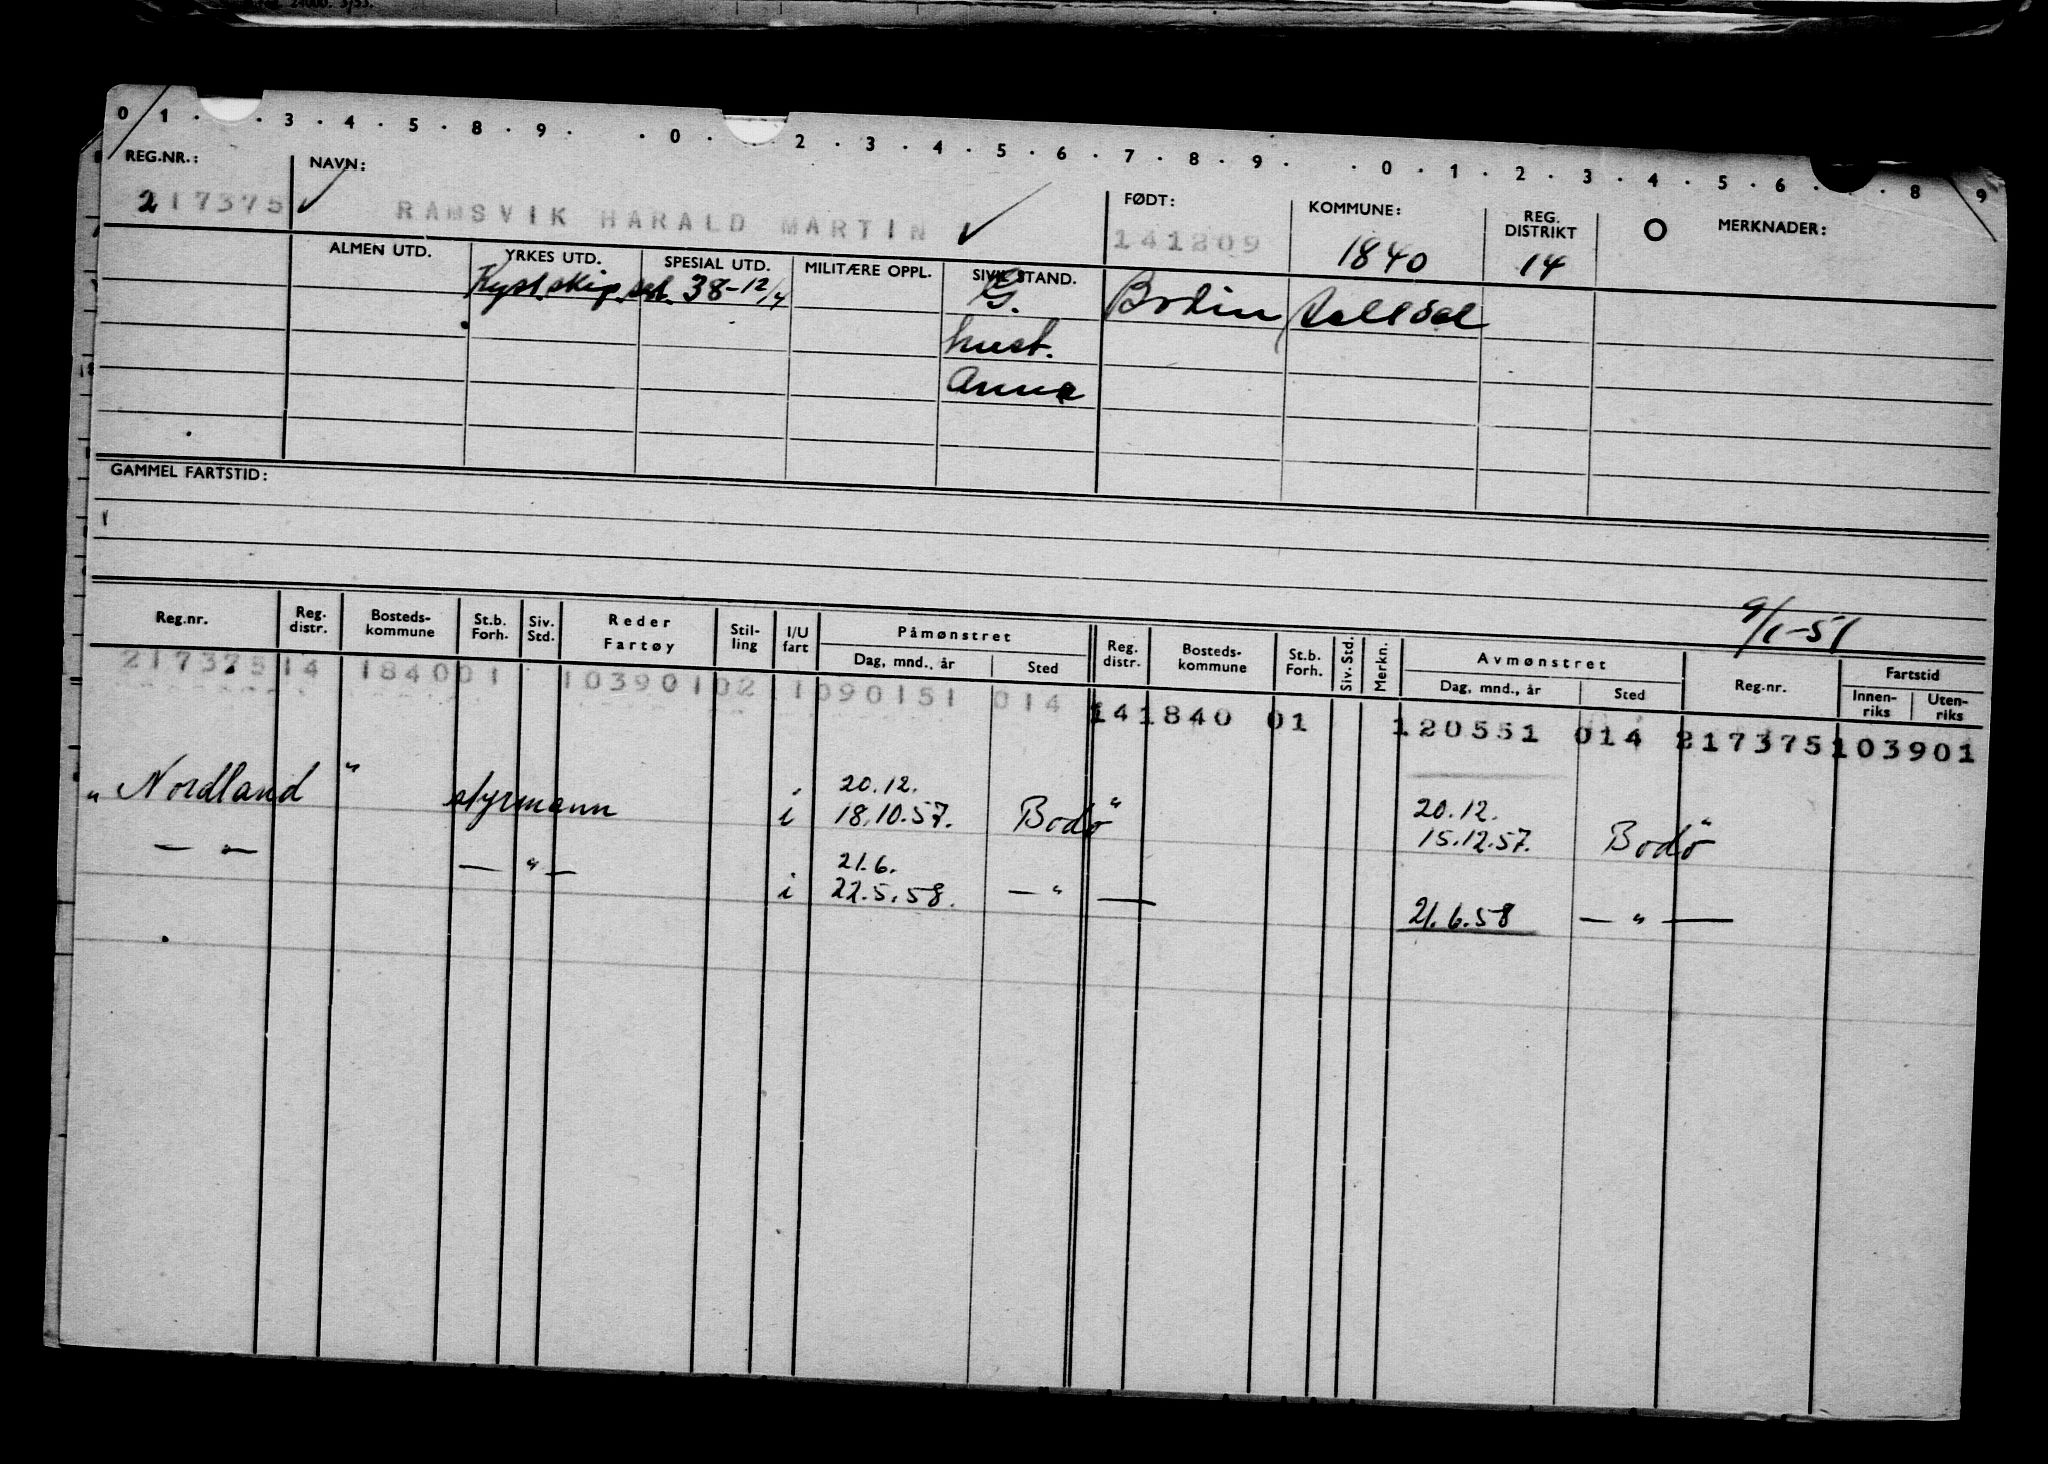 0 1 . . 3 . 4 . 5 . 8 . 9 . . 0 . 2 . 3 . 4 . 5 . 6 . 7 . 8 . 9 . . 0 . 1 . 2 . 3 . 4 . 5 . 6 . . 8 . 9
REG.NR.: NAVN: FØDT: KOMMUNE: REG. DISTRIKT MERKNADER:
217375 RAMSVIK HARALD MARTIN 141209 1840 14
ALMEN UTD. YRKES UTD. SPESIAL UTD. MILITÆRE OPPL. SIVILSTAND.
Kyst.skip.sert. 38-12/4 G. Bodin
hust.
Anna
GAMMEL FARTSTID:
9/1-51
Reg.nr. Reg. distr. Bosteds-kommune St.b. Forh. Siv. Std. Reder Fartøy Stil-ling I/U fart Påmønstret Dag, mnd., år Sted Reg. distr. Bosteds-kommune St.b. Forh. Siv. Std. Merkn. Avmønstret Dag, mnd., år Sted Reg.nr. Fartstid Innen-riks Uten-riks
217375 14 1840 01 103901 02 1 090151 014 14 1840 01 120551 014 217375 103901
20.12. 20.12.
„Nordland" styrmann i 18.10.57. Bodø 15.12.57. Bodø
21.6.
— " — — " — i 22.5.58. — " — 21.6.58 — " —